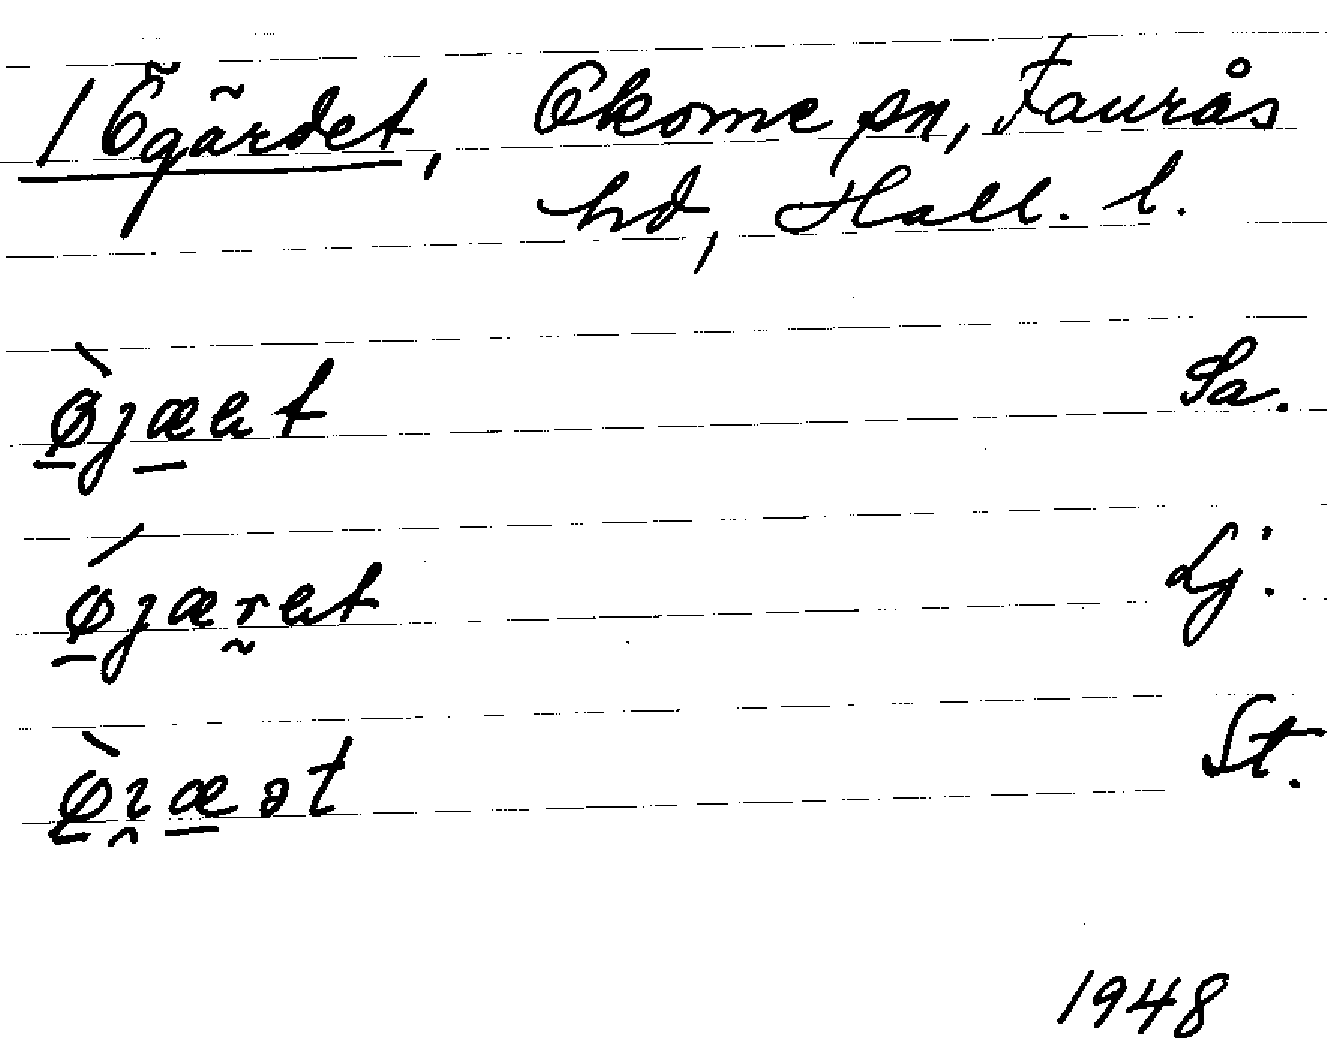 1 Ögärdet, Okome sn, Faurås
hd, Hall. l.
ø̀jæat Sa.
ǿjærat Lj.
ø̀ıæət St.
1948